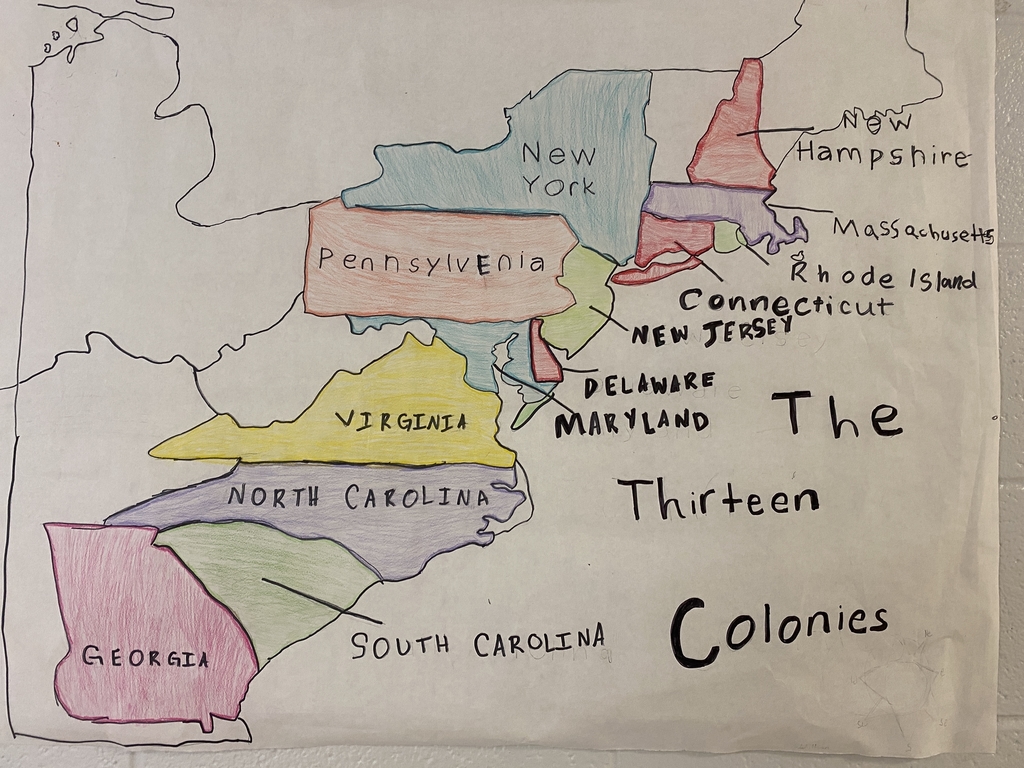 New
York
New
Hampshire
Massachusetts
Rhode Island
Pennsylvenia
Connecticut
NEW JERSEY
DELAWARE
MARYLAND
VIRGINIA
NORTH CAROLINA
SOUTH CAROLINA
GEORGIA
The
Thirteen
Colonies